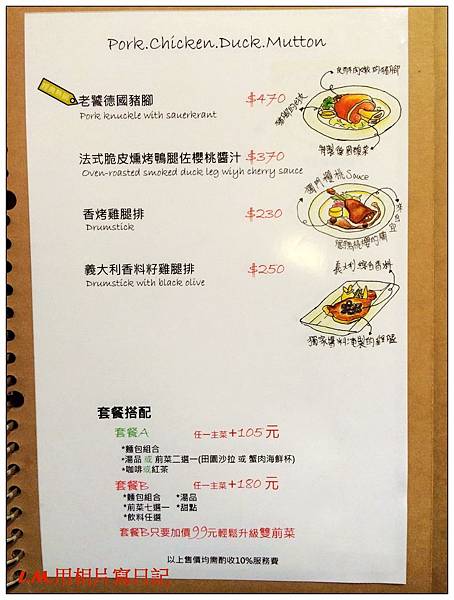 Pork.Chicken.Duck.Mutton
老饕德國豬腳 $470
Pork knuckle with sauerkrant
法式脆皮燻烤鴨腿佐櫻桃醬汁 $370
Oven-roasted smoked duck leg wiyh cherry sauce
獨門櫻桃Sauce
香烤雞腿排 $230
Drumstick
義大利香料籽雞腿排 $250
Drumstick with black olive
義大利綜合香料
獨家醬料淹製的雞腿
套餐搭配
套餐A 任一主菜+105元
*麵包組合
*湯品 或 前菜二選一(田園沙拉 或 蟹肉海鮮杯)
*咖啡或紅茶
套餐B 任一主菜+180元
*麵包組合 *湯品
*前菜七選一 *甜點
*飲料任選
套餐B只要加價99元輕鬆升級雙前菜
以上售價均需酌收10%服務費
I.M.用相片寫日記